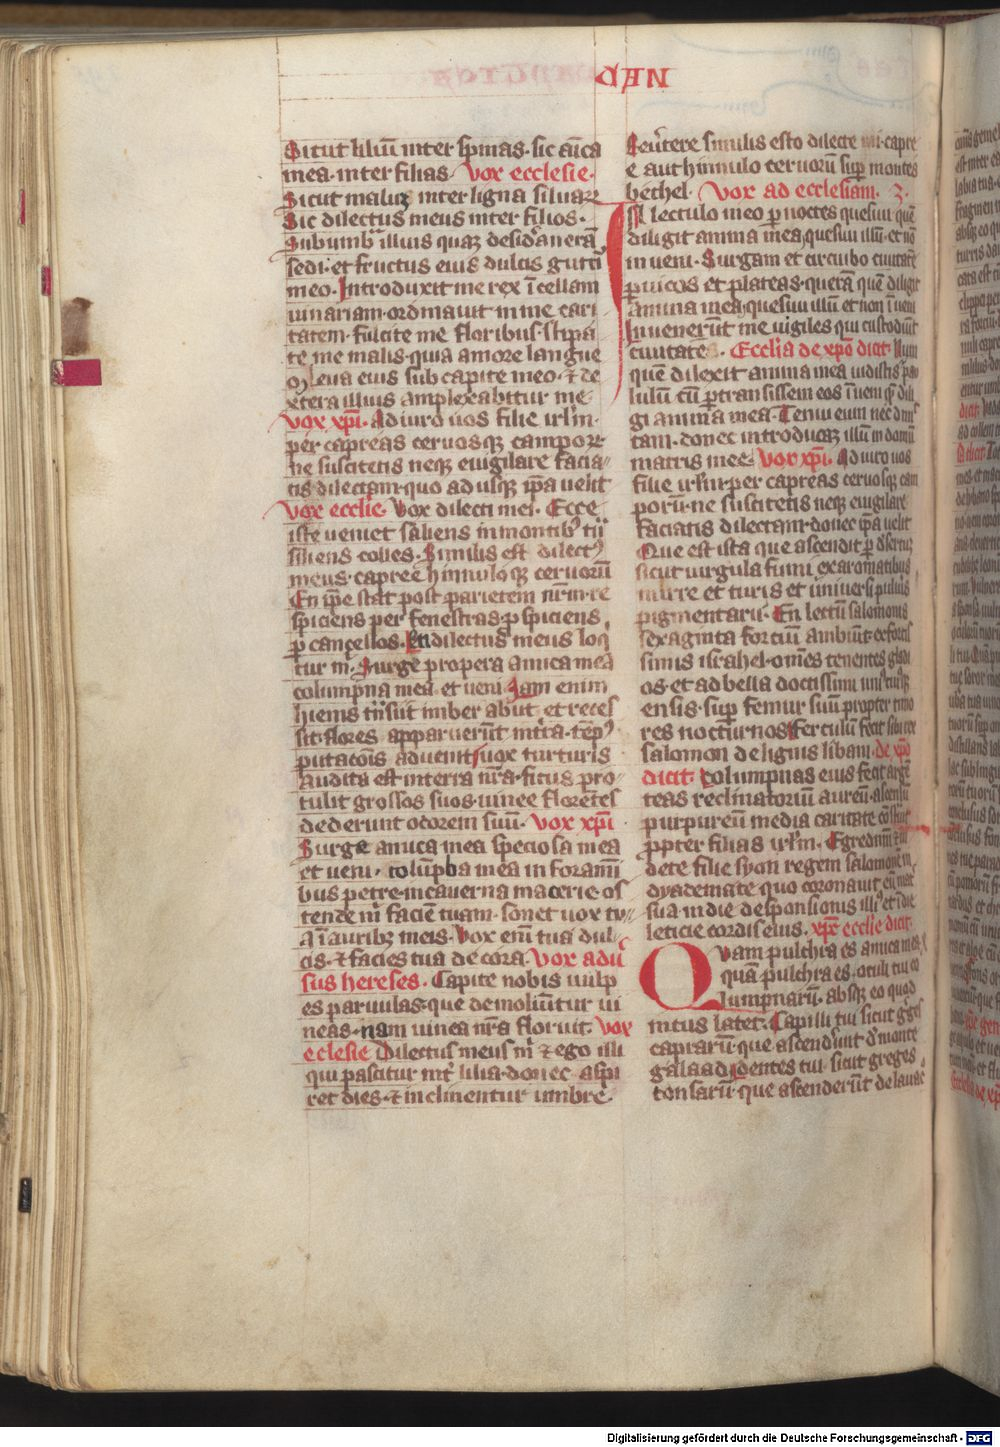 CAN
Sicut liliũ inter spinas· sic aĩca
mea· inter filias· Vox ecclesie·
Sicut malus inter ligna siluarꝝ
Sic dilectus meus inter filios·
Sub umbra illius quaʒ desidᷓaueraᷓ
sedi· et fructus eius dulcis gutturi
meo· Introduxit me rex ĩ cellam
uinariam· ordinauit in me cari
tatem· fulcite me floribus· stipa
te me malis· quia amore langue
o· Leua eius sub capite meo· ⁊ de
xtera illius amplexabitur me
vox xp̃i· Adiuro uos filie irl̃m·
per capreas ceruosqʒ camporꝝ
ne suscitetis neqʒ euigilare facia-
tis dilectam· quo ad usqʒ ip̃a uelit
vox ecclie· Vox dilecti mei· Ecce
iste ueniet saliens in montibꝰ tñ
siliens colles· Similis est dilectꝰ
meus· capree hinnuloqʒ ceruorũ
En ip̃e stat post parietem nr̃m· re
spiciens per fenestras· ꝓspiciens
ꝑ cancellos· En dilectus meus loq̃
tur m̃· Surge propera amica mea
columpna mea· et ueni· Iam enim
hiems tñsiit imber abiit· et reces
sit· flores apparuerũt in tr̃a· tẽpꝰ
putacõis aduenit· uox turturis
audita est in terra nr̃a· ficus pro-
tulit grossos suos· uinee florentes
dederunt odorem suũ· vox xp̃i
Surge amica mea speciosa mea
et ueni· columpba mea in forami
bus petre· in cauerna macerie· os
tende m̃ faciẽ tuam· sonet uox tu-
a ĩ auribꝫ meis· Vox eni᷑ tua dul-
cis· ⁊ facies tua decora· Vox adũ
sus hereses· Capite nobis uulp
es paruulas· que demoliũtur ui
neas· nam uinea nr̃a floruit· Vox
eclesie Dilectus meus m̃ ⁊ ego illi
qui pascitur int̃ lilia· donec aspi
ret dies· ⁊ inclinentur umbre·
Reũtere similis esto dilecte mi· capre
e aut hinnulo ceruorũ suꝑ montes
bethel· Vox ad ecclesiam· 3·
In lectulo meo ꝑ noctes quesiui quẽ
diligit anima mea, quesiui illũ· et nõ
inueni· Surgam et circuibo ciuitatẽ
ꝑ uicos et plateas· querã quẽ diligit
anima mea, quesiui illũ et non ĩueni
Inuenerũt me uigiles qui custodiũt
ciuitatẽ· Ecclia de xp̃o dicit· Num
quẽ dilexit anima mea uidistis· pau
lulũ cũ ꝑtransissem eos ĩueni q̃ dili
git anima mea· Tenui eum nec dimit
tam· donec introducaʒ illũ in domũ
matris mee· Vox xp̃i· Adiuro uos
filie irl̃m· per capreas ceruosqʒ cam
porũ· ne suscitetis neqʒ euigilare
faciatis dilectam· donec ip̃a uelit
Que est ista que ascendit ꝑ desertuʒ
sicut uirgula fumi ex aromatibus
mirre et turis et uniuersi puluis
pigmentarii· En lectũ salomonis
sexaginta fortiũ ambiũt· ex fortis
simis israhel· om̃es tenentes gladi
os· et ad bella doctissimi· uniꝰcuiꝰqʒ
ensis· suꝑ femur suũ propter timo
res nocturnos Ferculũ fecit sibi rex
salomon de lignis libani· de xp̃o
dicit· Columpnas eius fecit argẽ
teas· reclinatoriũ aureũ· ascensũ
purpureũ· media caritate cõstrauit
ꝓpter filias irl̃m· Egredimĩ et ui
dete filie syon regem salomonem in
dyademate quo coronauit eũ mat̃
sua· in die desponsionis illiꝰ et ĩ die
leticie cordis eius· xp̃c ecclie dicit·
Quam pulchra es amica mea,
quã pulchra es· oculi tui co
lumpnarũ· absqʒ eo quod
intus latet· Capilli tui sicut g̃ges
caprarũ· que ascenderũt de monte
galaad· dentes tui· sicut greges
tonsarũ· que ascenderũt de lauac
Digitalisierung gefördert durch die Deutsche Forschungsgemeinschaft - DFG